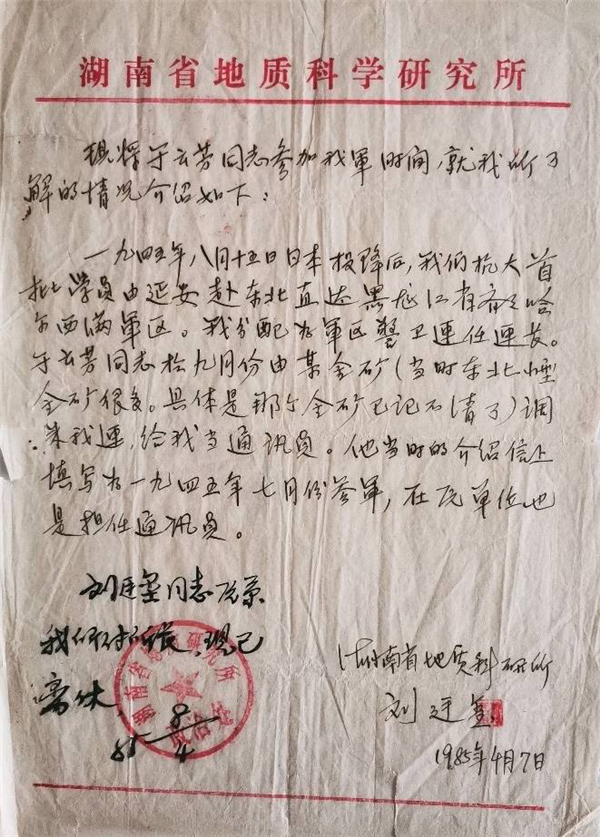 湖南省地质科学研究所
现将于云芳同志参加我軍时间,就我所了
解的情况介绍如下:
一九四五年八月十五日日本投降后,我们抗大首
批学员由延安赴东北直达黑龙江省齐齐哈
尔西满軍区。我分配为軍区警卫連任連长。
于云芳同志於九月份由某金矿(当时东北小型
金矿很多。具体是那个金矿已记不清了)调
来我連,给我当通讯员。他当时的介绍信上
填写为一九四五年七月份参軍,在原单位也
是担任通讯员。
刘廷玺同志原系
我所付所长,现已
离休。
85 9/4
湖南省地质科研所
刘廷玺
1985年4月7日